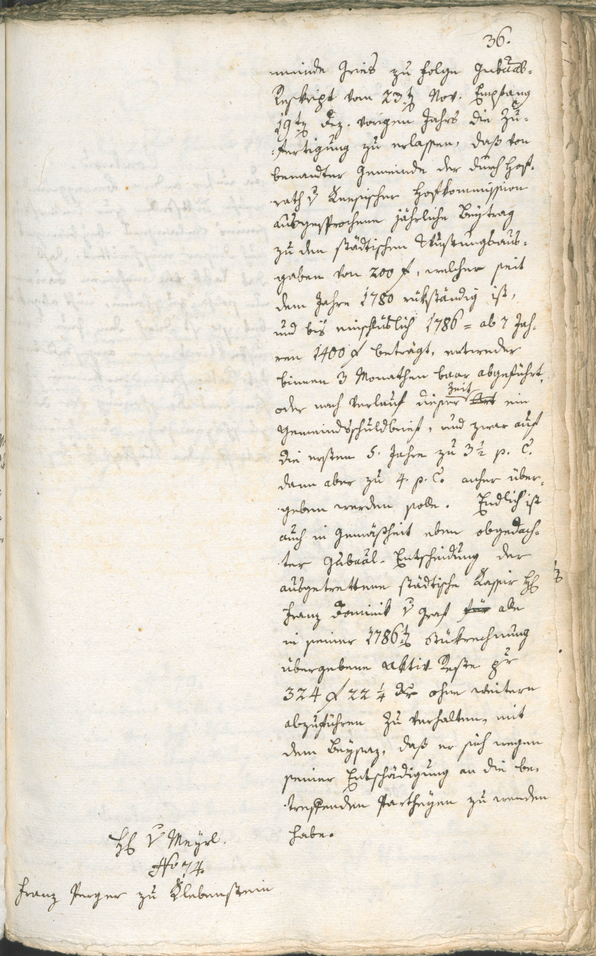 36.
meinde Gries zu folge Gubal-
Reskript vom 23ten Nov. Empfang
19ten Dez. vorigen Jahrs die Zu-
fertigung zu erlassen, daß von
benandter Gemeinde der durch Hof-
rath v
Hofkommission
ausgesprochene jährliche Beytrag
zu den städtischen Rüstungsaus-
gaben von 200 f, welcher seit
dem Jahre 1780 rükständig ist,
und bis einschlüslich 1786 = als 7 Jah-
ren 1400 f beträgt, entweder
binnen 3 Monathen baar abgeführt,
oder nach Verlauf dieser Zeit ein
Gemeindsschuldbrief, und zwar auf
die ersten 5. Jahre zu 3½ p. C.
dann aber zu 4. p. Co. anher über-
geben werden solle. Endlich ist
auch in Gemäßheit eben obgedach-
ter Gubaal-Entscheidung der
ausgetrettene städtische Kassir H
Franz Dominik v Graf für alle
in seiner 1786ten Stükrechnung
übergebene aktiv Reste pr
324 f 22¼ ohne weitere
abzuführen zu verhalten, mit
dem Beysaz, daß er sich wegen
seiner Entschädigung an die be-
treffenden Partheyen zu wenden
habe.
H v Mayrl.
No 74
Franz Perger zu Klebenstein